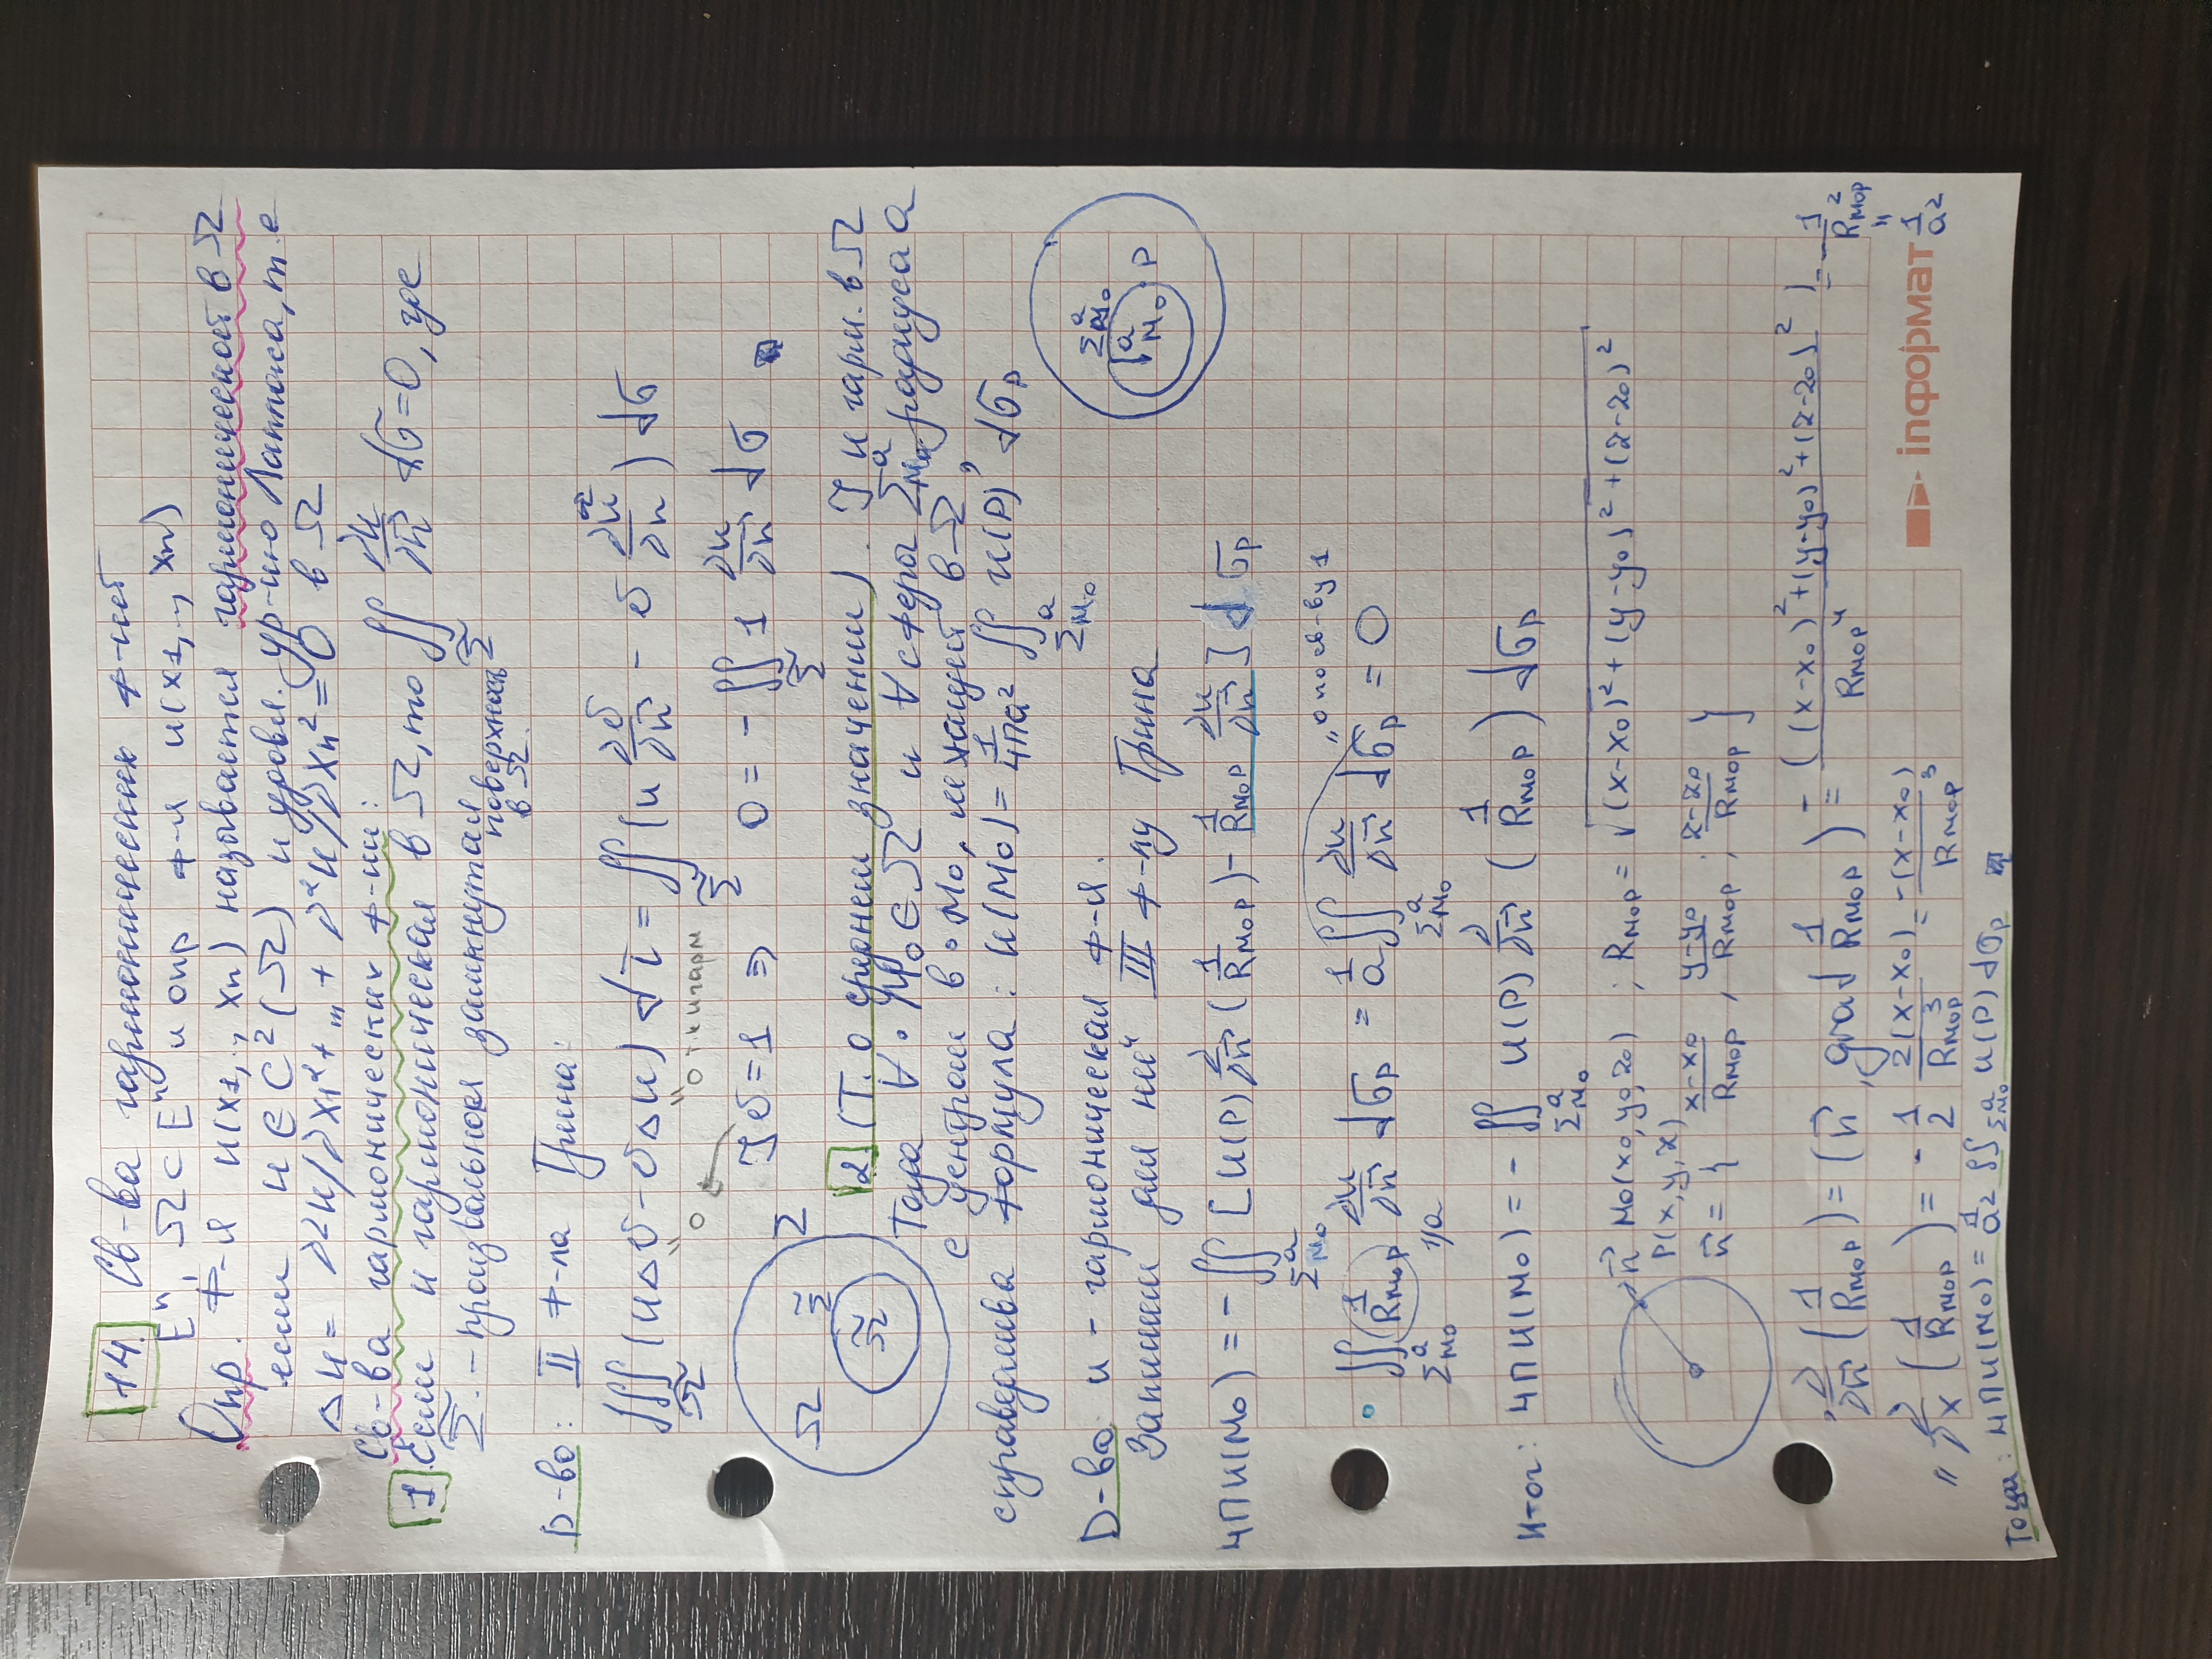 14. Св-ва гармонических ф-ций
Eⁿ, Ω ⊂ Eⁿ и опр ф-я u(x₁,.., xₙ)
Опр. ф-я u(x₁,.., xₙ) называется гармонической в Ω
если u ∈ C²(Ω) и удовл. ур-ию Лапласа, т.е
Δu = ∂²u/∂x₁² + ... + ∂²u/∂xₙ² = 0 в Ω
Св-ва гармонических ф-ий:
1 Если u гармоническая в Ω, то ∬_Σ̃ ∂u/∂n⃗ dσ = 0, где
Σ̃ - произвольная замкнутая поверхность
в Ω.
D-во: II ф-ла Грина:
∭_Ω̃ (uΔv - vΔu) dτ = ∬_Σ̃ (u ∂v/∂n⃗ - v ∂u/∂n) dσ
"0 "0 т.к u гарм
] v = 1 ⇒ 0 = - ∬_Σ̃ 1 ∂u/∂n⃗ dσ
Ω Σ̃ Ω̃ Σ
2 (Т. о среднем значении). ] u гарм. в Ω
Тогда ∀ М₀ ∈ Ω и ∀ сфера Σ^a_M₀ радиуса a
с центром в ∙ М₀, лежащей в Ω,
справедлива формула: u(M₀) = 1/4πa² ∬_Σ^a_M₀ u(P) dσ_P
Σ^a_M₀ a M₀ P
D-во: u - гармоническая ф-я.
Запишем для неё III ф-лу Грина
4πu(M₀) = - ∬_Σ^a_M₀ [u(P) ∂/∂n⃗ (1/R_M₀P) - 1/R_M₀P ∂u/∂n⃗] dσ_P
"0 по св-ву 1
∙ ∬_Σ^a_M₀ (1/R_M₀P) ∂u/∂n⃗ dσ_P = 1/a ∬_Σ^a_M₀ ∂u/∂n⃗ dσ_P = 0
1/a
Итог: 4πu(M₀) = - ∬_Σ^a_M₀ u(P) ∂/∂n⃗ (1/R_M₀P) dσ_P
n⃗ M₀(x₀, y₀, z₀) ; R_M₀P = √(x-x₀)² + (y-y₀)² + (z-z₀)²
P(x, y, z)
n⃗ = { x-x₀/R_M₀P , y-y₀/R_M₀P , z-z₀/R_M₀P }
∂/∂n⃗ (1/R_M₀P) = (n⃗, grad 1/R_M₀P) = - ((x-x₀)² + (y-y₀)² + (z-z₀)²/R_M₀P⁴) = - 1/R²_M₀P
" 1/a²
" ∂/∂x (1/R_M₀P) = - 1/2 2(x-x₀)/R³_M₀P = -(x-x₀)/R_M₀P³
Тогда: 4πu(M₀) = 1/a² ∬_Σ^a_M₀ u(P) dσ_P
inформат